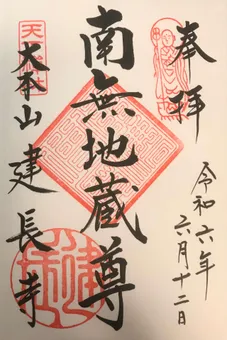 奉拝
令和六年
六月十二日
南無地蔵尊
大本山建長寺